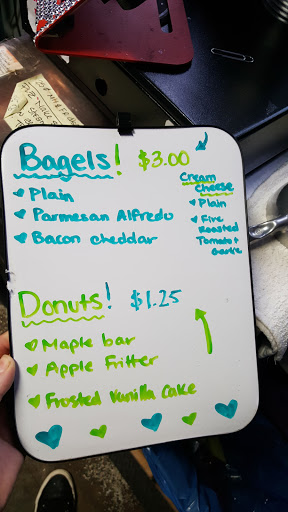 Bagels! $3.00
Plain
Parmesan Alfredo
Bacon cheddar
Cream
Cheese
Plain
Fire
Roasted
Tomato +
Garlic
Donuts! $1.25
Maple bar
Apple Fritter
Frosted Vanilla Cake